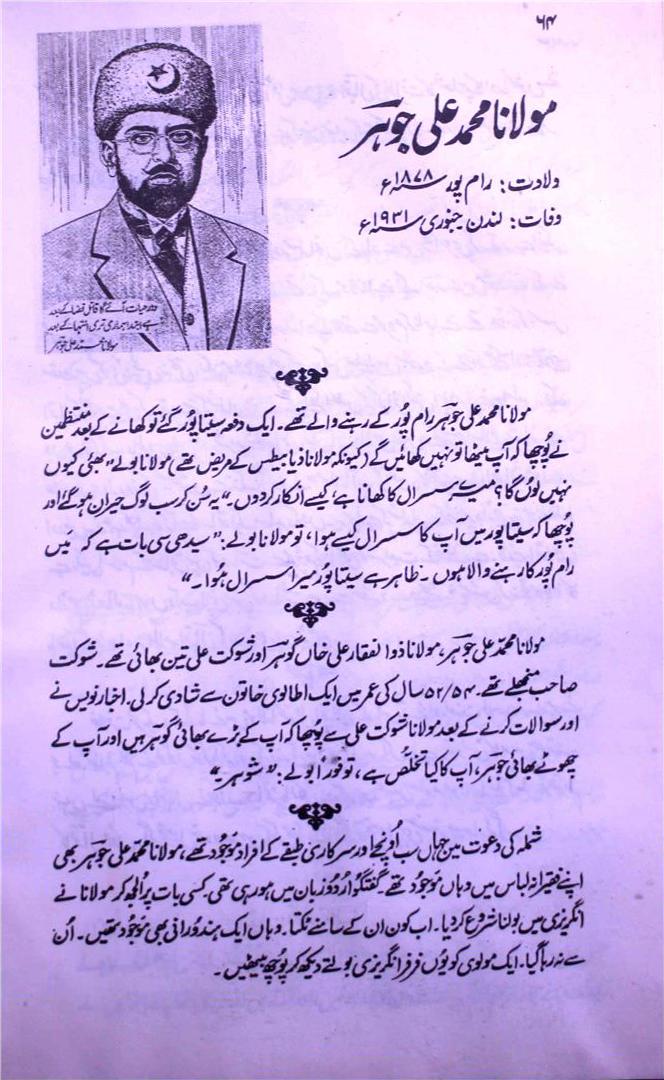 ۶۴
مولانا محمد علی جوہر
ولادت: رام پور ۱۸۷۸ء
وفات: لندن جنوری ۱۹۳۱ء
دور حیات آئے گا قاتل قضا کے بعد
ہے ابتدا ہماری تری انتہا کے بعد
مولانا محمد علی جوہر
مولانا محمد علی جوہر رام پُور کے رہنے والے تھے۔ ایک دفعہ سیتا پور گئے تو کھانے کے بعد منتظمین
نے پُوچھا کہ آپ میٹھا تو نہیں کھائیں گے (کیونکہ مولانا ذیابیطس کے مریض تھے) مولانا بولے "بھئی کیوں
نہیں لوُں گا؟ میرے سسرال کا کھانا ہے، کیسے انکار کردوں۔" یہ سُن کر سب لوگ حیران ہو گئے اور
پُوچھا کہ سیتا پور میں آپ کا سسرال کیسے ہوا، تو مولانا بولے: "سیدھی سی بات ہے کہ میں
رام پُور کا رہنے والا ہوں۔ ظاہر ہے سیتا پوُر میرا سسرال ہُوا۔"
مولانا محمّد علی جوہر، مولانا ذوالفقار علی خاں گوہر اور شوکت علی تین بھائی تھے۔ شوکت
صاحب منجھلے تھے۔ ۵۲/۵۴ سال کی عمر میں ایک اطالوی خاتون سے شادی کرلی۔ اخبار نویس نے
اور سوالات کرنے کے بعد مولانا شوکت علی سے پُوچھا کہ آپ کے بڑے بھائی گوہر ہیں اور آپ کے
چھوٹے بھائی جوہر، آپ کا کیا تخلّص ہے، تو فوراً بولے: "شوہر"
شملہ کی دعوت میں جہاں سب اُونچے اور سرکاری طبقے کے افراد موجُود تھے، مولانا محمّد علی جوہر بھی
اپنے فقیرانہ لباس میں وہاں موجُود تھے۔ گفتگو اُردُو زبان میں ہو رہی تھی۔ کسی بات پر اُلجھ کر مولانا نے
انگریزی میں بولنا شروع کر دیا۔ اب کون ان کے سامنے ٹکتا۔ وہاں ایک ہندُو رانی بھی موجُود تھیں۔ اُن
سے نہ رہا گیا۔ ایک مولوی کو یُوں فرفر انگریزی بولتے دیکھ کر پُوچھ بیٹھیں۔